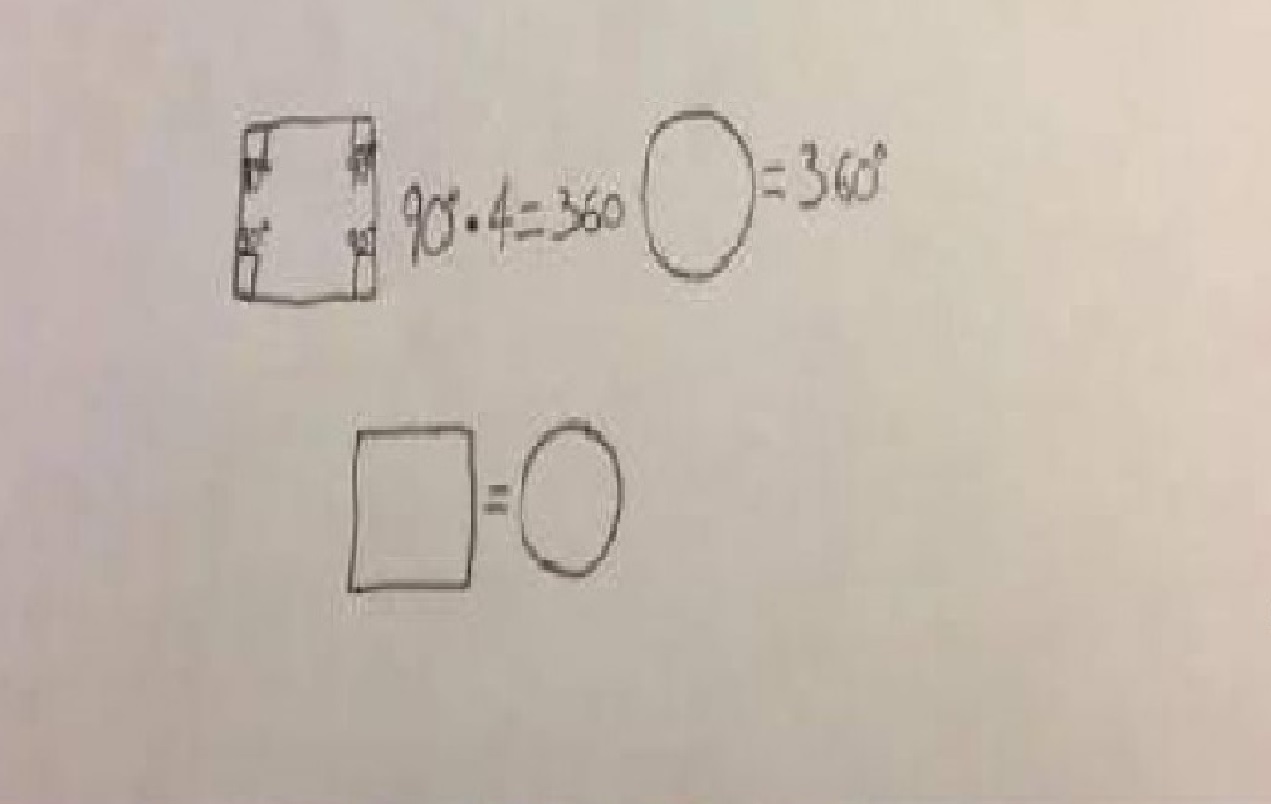 90° 90°
90° 90°
90°·4=360 =360°
=